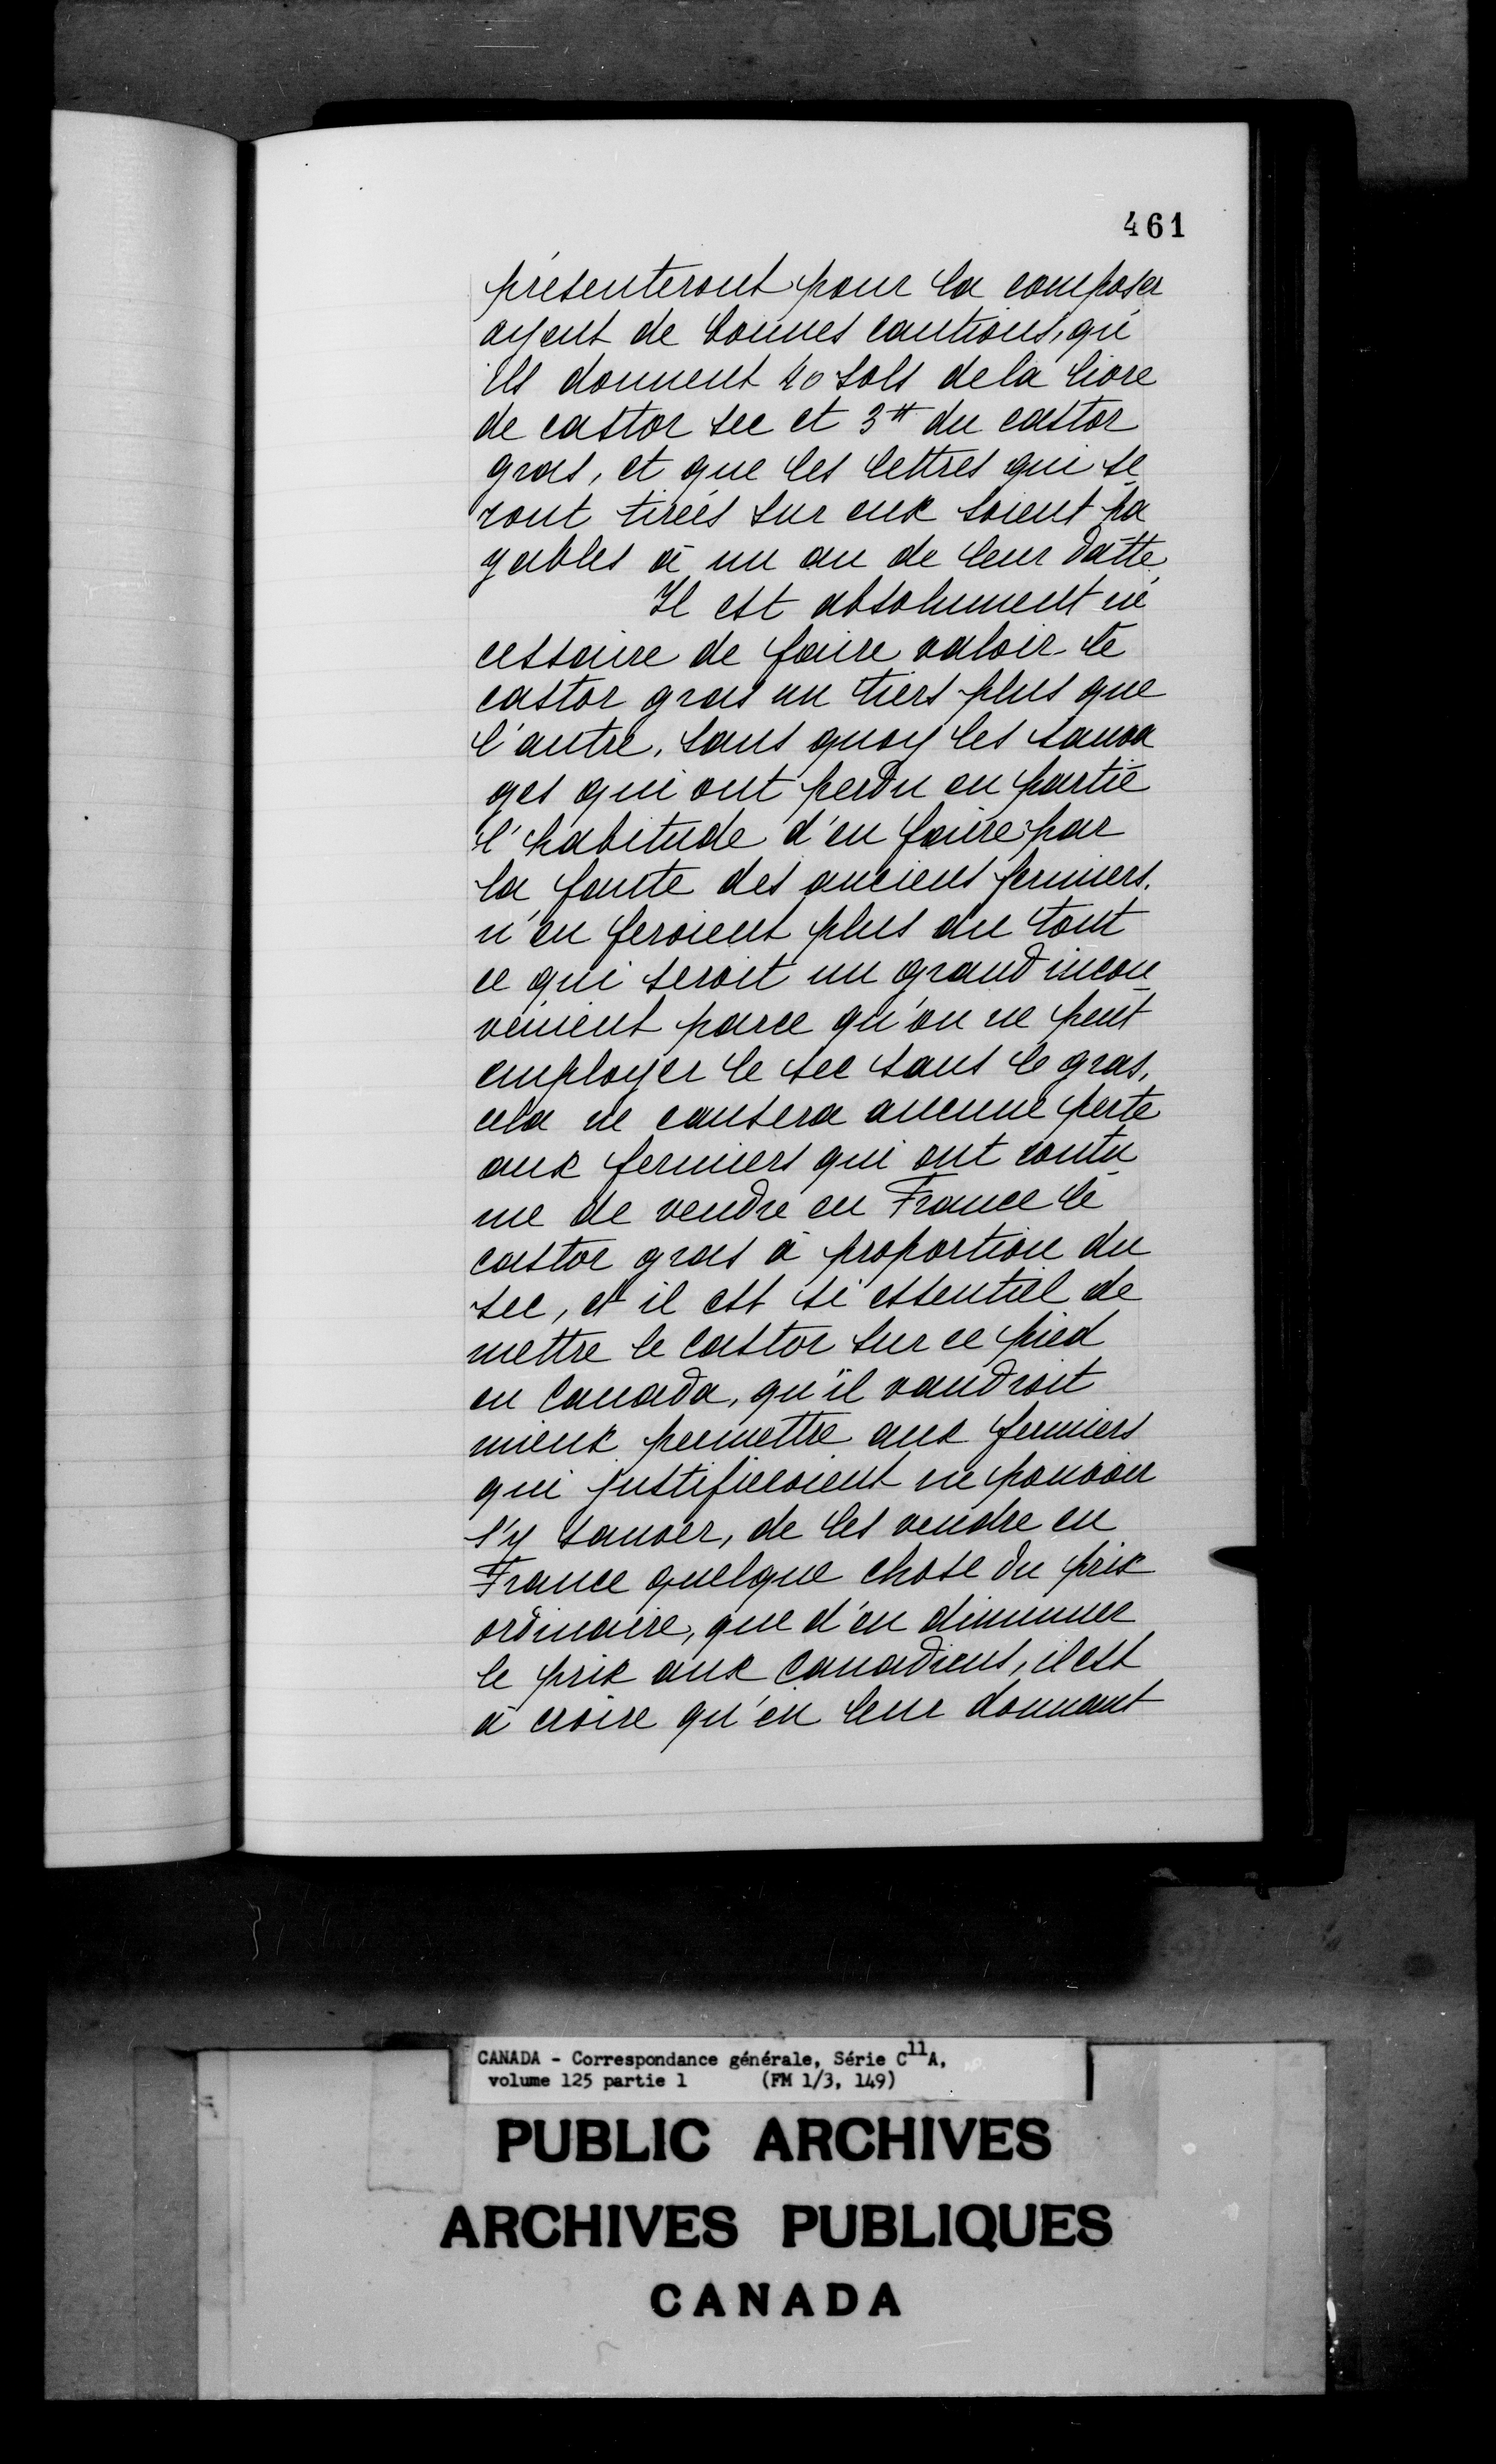 461
présenteront pour la composer
ayent de bonnes cautions, qu'
ils donnent 40 sols de la livre
de castor sec et 3# du castor
gras, et que les lettres qui se
ront tirées sur eux soient pa
yables à un an de leur datte
Il est absolument né
cessaire de faire valoir le
castor gras un tiers plus que
l'autre, sans quoy les sauva
ges qui ont perdu en partie
l'habitude d'en faire par
la faute des anciens fermiers.
n'en feroient plus du tout
ce qui seroit un grand incon
vénient parce qu'on ne peut
employer le sec sans le gras,
cela ne causera aucune perte
aux fermiers qui ont coutu
me de vendre en France le
castor gras à proportion du
sec, et il est si essentiel de
mettre le castor sur ce pied
en Canada, qu'il vaudroit
mieux permettre aux fermiers
qui justifieroient ne pouvoir
s'y sauver, de les vendre en
France quelque chose du prix
ordinaire, que d'en diminuer
le prix aux Canadiens, il est
à croire qu'en leur donnant
CANADA - Correspondance générale, Série C11A,
volume 125 partie 1 (FM 1/3, 149)
PUBLIC ARCHIVES
ARCHIVES PUBLIQUES
CANADA